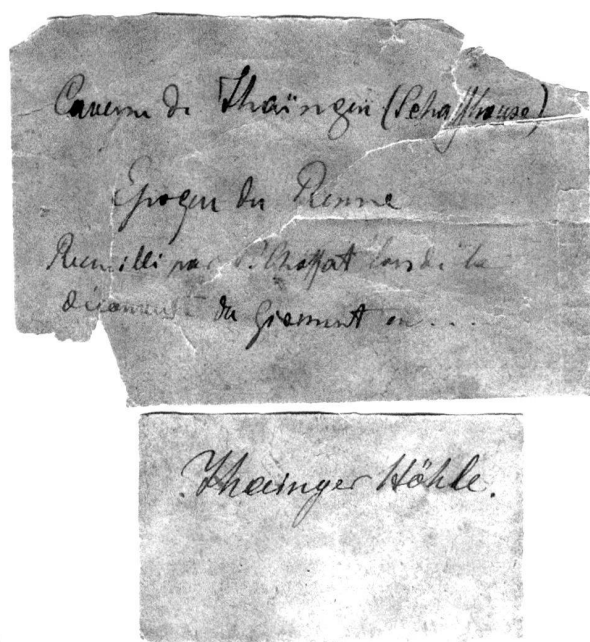 Caverne de Thaïngen (Schaffhouse)
Epoque du Renne
Recueilli par P. Choffat lors de la
découverte du gisement en ...
Thainger Höhle.